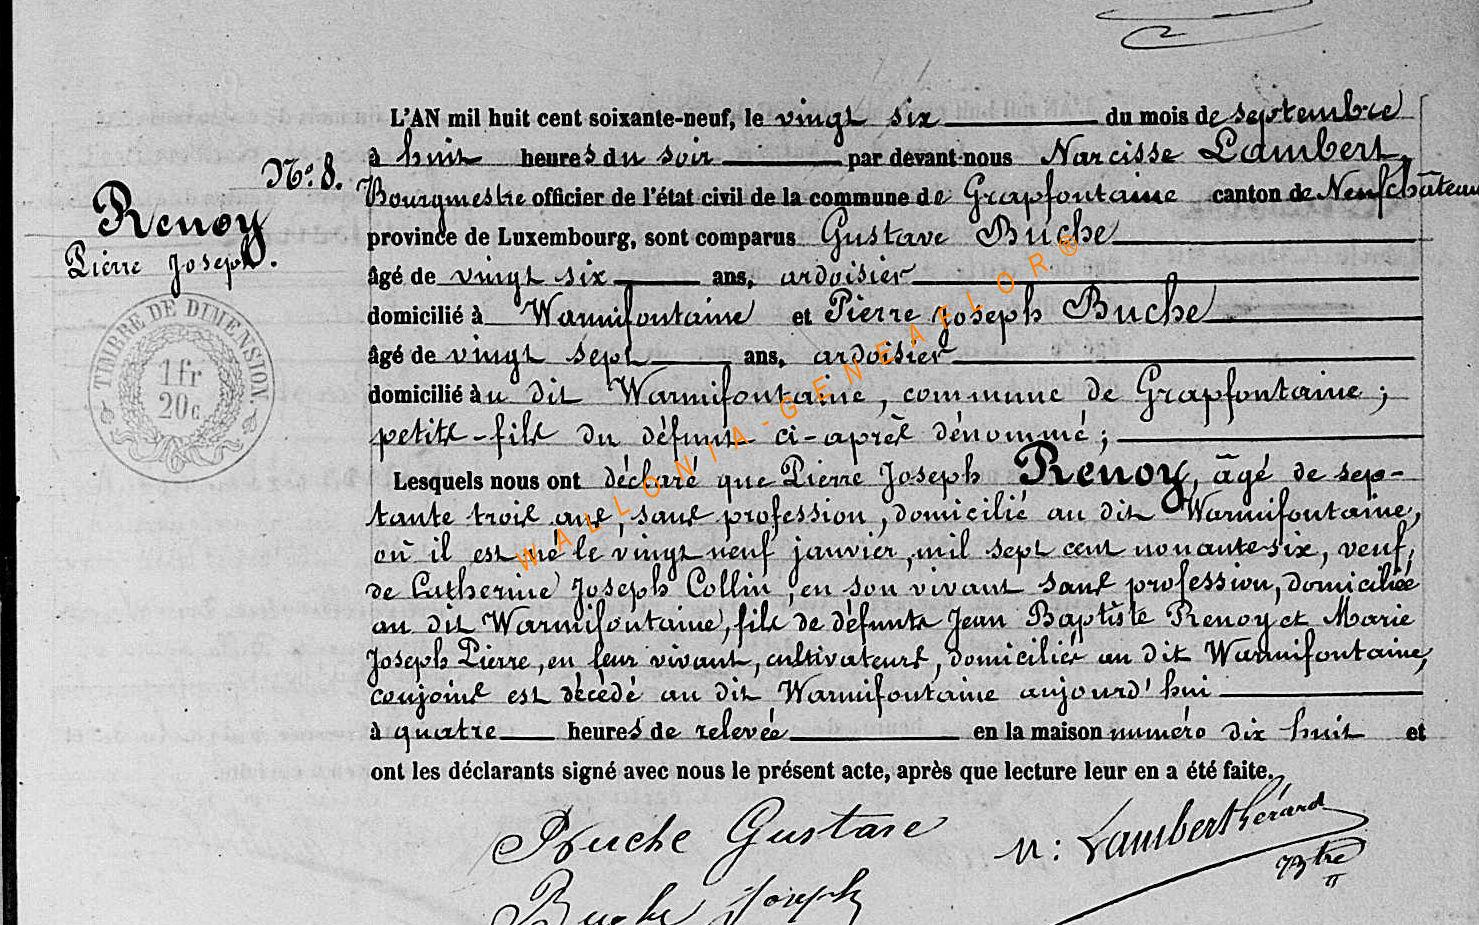 L'AN mil huit cent soixante-neuf, le vingt six du mois de septembre
N°. 8. à huit heures du soir par devant nous Narcisse Lambert,
Renoy Bourgmestre officier de l'état civil de la commune de Grapfontaine canton de Neufchâteau
Pierre Joseph. province de Luxembourg, sont comparus Gustave Buche
âgé de vingt six ans, ardoisier
TIMBRE DE DIMENSION
1 fr
20 c
domicilié à Warmifontaine et Pierre Joseph Buche
âgé de vingt sept ans, ardoisier
domicilié au dit Warmifontaine, commune de Grapfontaine ;
petits-fils du défunt ci-après dénommé ;
Lesquels nous ont déclaré que Pierre Joseph Renoy, âgé de sep-
tante trois ans, sans profession, domicilié au dit Warmifontaine,
où il est né le vingt neuf janvier, mil sept cent nonante-six, veuf,
de Catherine Joseph Collin, en son vivant sans profession, domiciliée
au dit Warmifontaine, fils de défunts Jean Baptiste Renoy et Marie
Joseph Pierre, en leur vivant, cultivateurs, domiciliés au dit Warmifontaine,
conjoins est décédé au dit Warmifontaine aujourd'hui
à quatre heures de relevée en la maison numéro dix huit et
ont les déclarants signé avec nous le présent acte, après que lecture leur en a été faite.
WALLONIA-GENEAFLOR®
Buche Gustave N: Lambert hérard
Btre
Buche Joseph